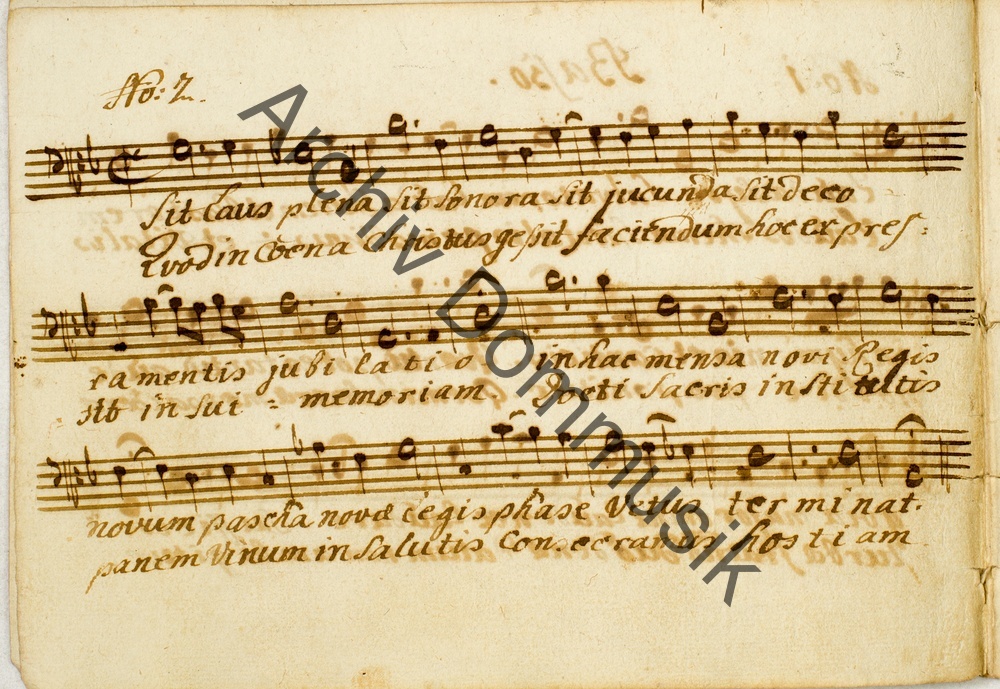 No: 2.
Sit laus plena sit sonora sit jucunda sit deco
Quod in Coena Christus gessit faciendum hoc ex pres:
ra mentis jubi la ti o in hac mensa novi Regis
sit in sui = memoriam. Docti Sacris in sti tutis
novum pascha novæ legis phase Vetus ter mi nat.
panem Vinum in Salutis Consecramus hos ti am
Archiv Dommusik